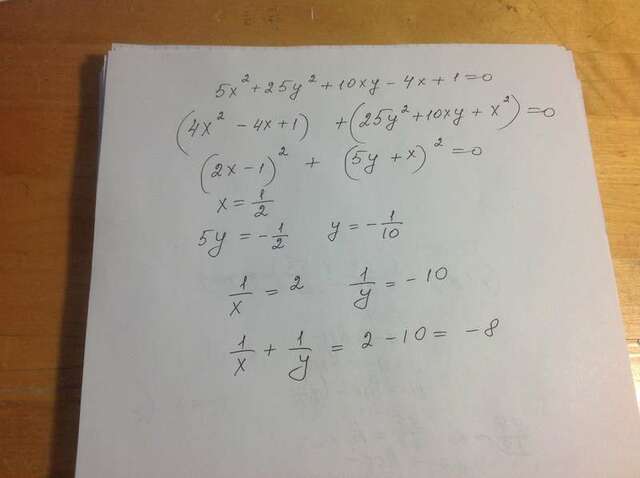 5x² + 25y² + 10xy - 4x + 1 = 0
(4x² - 4x + 1) + (25y² + 10xy + x²) = 0
(2x - 1)² + (5y + x)² = 0
x = 1/2
5y = -1/2 y = -1/10
1/x = 2 1/y = -10
1/x + 1/y = 2 - 10 = -8